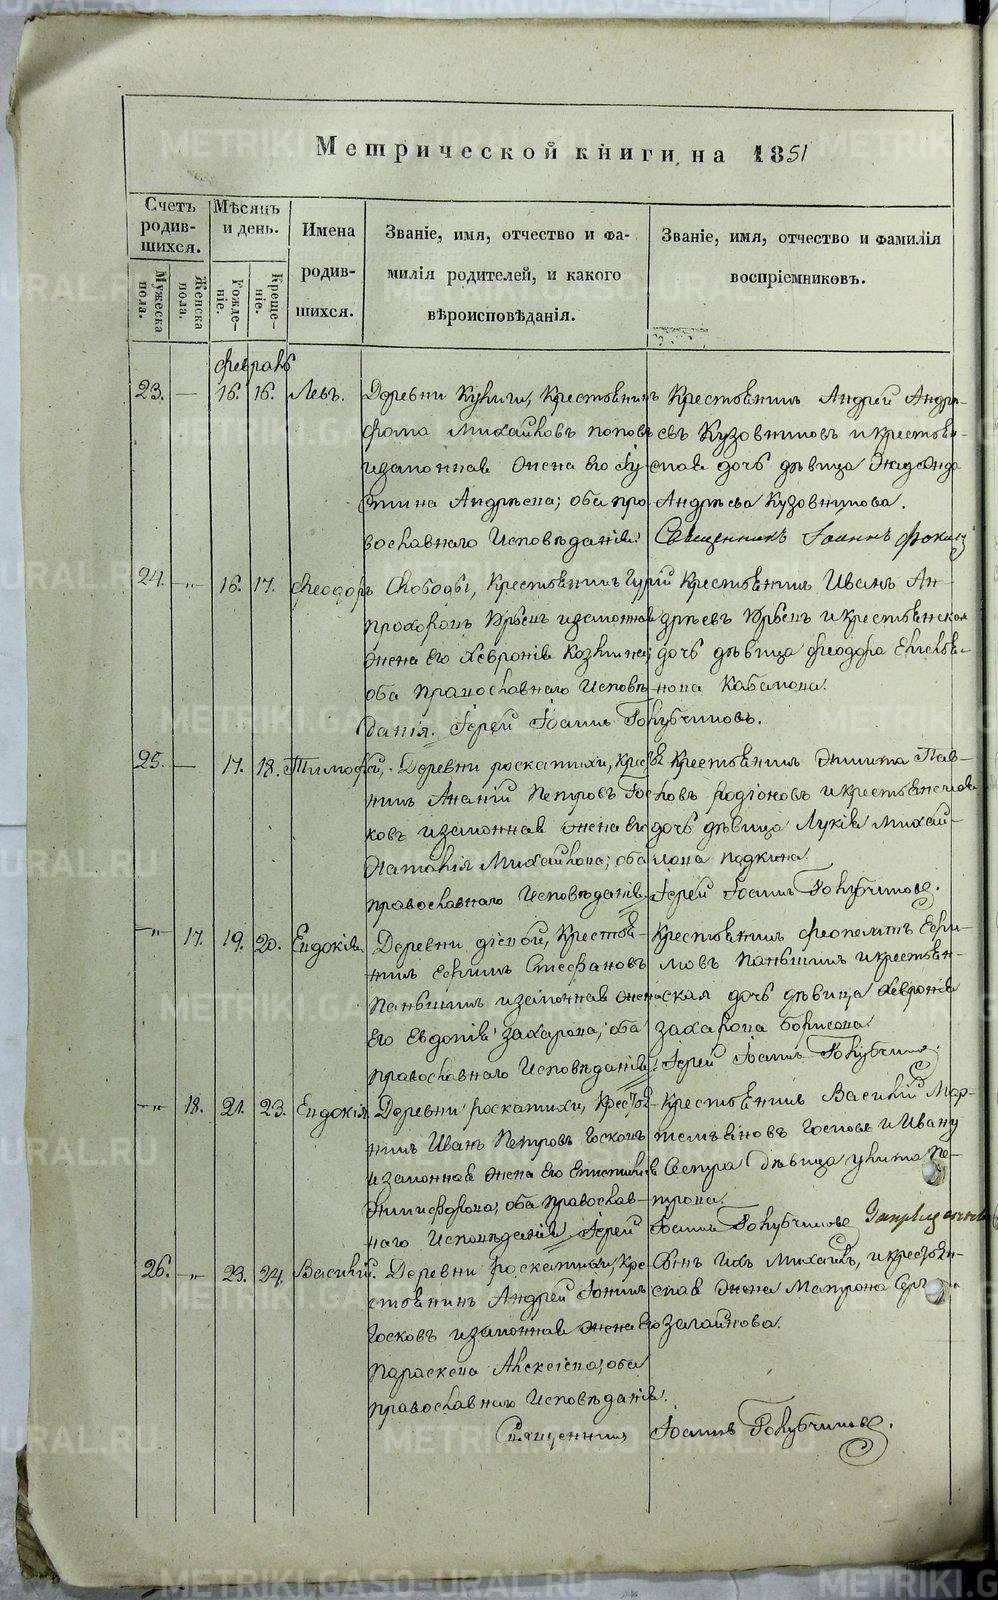 Метрической книги на 1851
Счетъ родившихся.
Мужеска пола.
Женска пола.
Мѣсяцъ и день.
Рожденіе.
Крещеніе.
Имена родившихся.
Званіе, имя, отчество и фамилія родителей, и какого вѣроисповѣданія.
Званіе, имя, отчество и фамилія воспріемниковъ.
февраль
23. — 16. 16. Левъ.
Деревни Крестьянинъ
Михайловъ Поповъ
и законная жена его
Андрѣева; оба пра-
вославнаго Исповѣданія.
Крестьянинъ Андрей Андре-
евъ Кузовниковъ и крестьян-
ская дочь дѣвица
Андрѣева Кузовникова.
Священникъ Іоаннъ Фокинъ
24. -"- 16. 17. Феодоръ
Слободы, Крестьянинъ Гурій
Прохоровъ и законная
жена его Хевронія Козмина;
оба Православнаго Исповѣ-
данія. Іерей Іоаннъ Голубчиковъ.
Крестьянинъ Иванъ Ан-
дрѣевъ и крестьянская
дочь дѣвица Феодора
25. — 17. 18. Тимофей,
Деревни роскатихи, Крестья-
нинъ Ананій Петровъ Гос-
ковъ и законная жена его
Наталія Михайлова; оба
православнаго Исповѣданія.
Крестьянинъ Никита Пав-
ловъ Родіоновъ и крестьянская
дочь дѣвица Лукія Михай-
лова
Іерей Іоаннъ Голубчиковъ.
-"- 17. 19. 20. Евдокія.
Деревни Крестья-
нинъ Ефимъ Стефановъ
Паньшинъ и законная жена
его Евдокія Захарова; оба
православнаго Исповѣданія.
Крестьянинъ Ефи-
мовъ Паньшинъ и крестьян-
ская дочь дѣвица Хевронія
Захарова Борисова.
Іерей Іоаннъ Голубчиковъ.
-"- 18. 21. 23. Евдокія
Деревни роскатихи, Крестья-
нинъ Иванъ Петровъ Госковъ
и законная жена его
Никифорова; оба Православ-
наго Исповѣданія. Іерей Іоаннъ Голубчиковъ
Крестьянинъ Василій
Госковъ и Ивану
Сестра дѣвица Улита Пе-
трова.
26. -"- 23. 24. Василій.
Деревни роскатихи, Кре-
стьянинъ Андрей
Госковъ и законная жена его
Параскева Алексѣева; оба
православнаго Исповѣданія.
Сынъ ихъ Михаилъ, и крестьян-
ская жена Матрона
Священникъ Іоаннъ Голубчиковъ.
METRIKI.GASO-URAL.RU